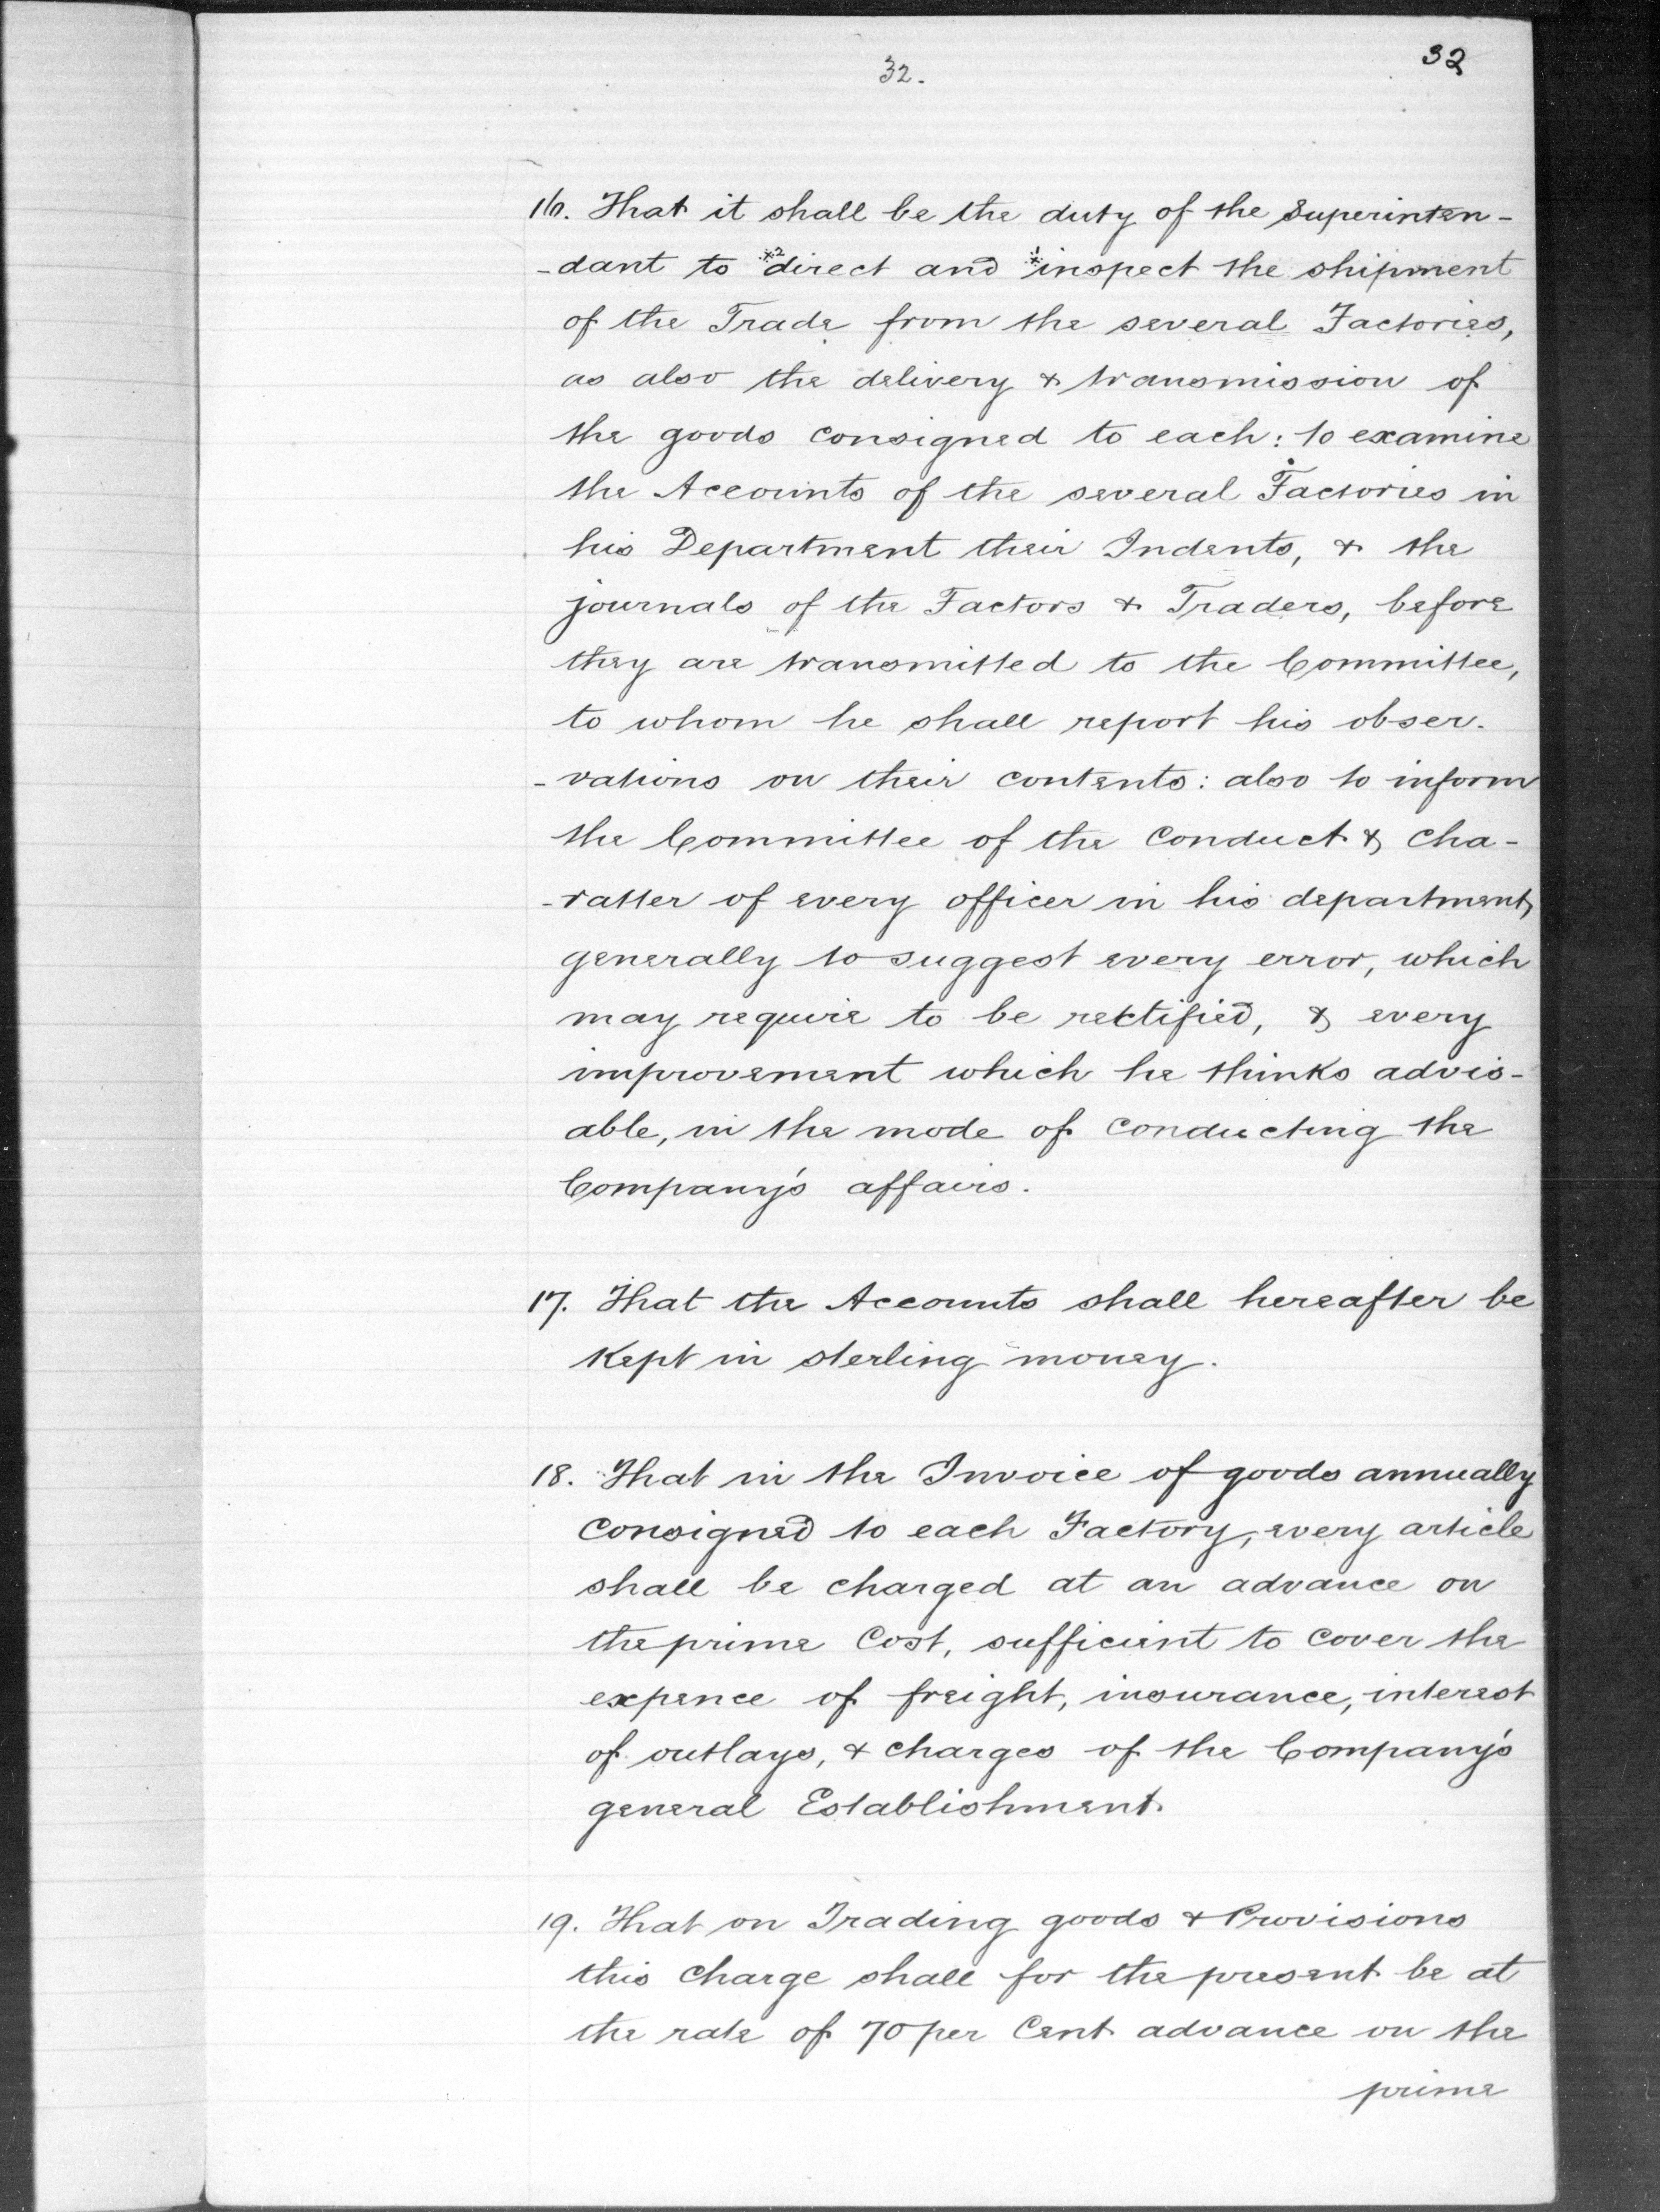 32
32.
16. That it shall be the duty of the Superinten-
-dant to *2direct and *1inspect the shipment
of the Trade from the several Factories,
as also the delivery & transmission of
the goods consigned to each: to examine
the Accounts of the several Factories in
his Department their Indents, & the
journals of the Factors & Traders, before
they are transmitted to the Committee,
to whom he shall report his obser-
-vations on their contents: also to inform
the Committee of the conduct & cha-
-ratter of every officer in his department,
generally to suggest every error, which
may require to be rectified, & every
improvement which he thinks advis-
able, in the mode of conducting the
Company's affairs.
17. That the Accounts shall hereafter be
Kept in sterling money.
18. That in the Invoice of goods annually
consigned to each Factory, every article
shall be charged at an advance on
the prime Cost, sufficient to cover the
expence of freight, insurance, interest
of outlays, & charges of the Company's
general Establishment.
19. That on Trading goods & Provisions
this charge shall for the present be at
the rate of 70 per Cent advance on the
prime